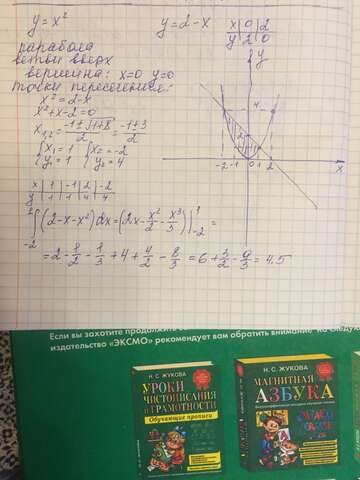 y = x²
y = 2 - x
x | 0 | 2
y | 2 | 0
парабола
ветви вверх
вершина: x=0 y=0
точки пересечения:
x² = 2-x
x²+x-2=0
x₁,₂ = (-1±√1+8)/2 = (-1±3)/2
{x₁ = 1 {x₂ = -2
{y₁ = 1 {y₂ = 4
x | 1 | -1 | 2 | -2
y | 1 | 1 | 4 | 4
y
4
-2 -1 0 1 2 x
∫₋₂¹ (2-x-x²)dx = (2x - x²/2 - x³/3)|₋₂¹ =
= 2 - 1/2 - 1/3 + 4 + 4/2 - 8/3 = 6 + 3/2 - 9/3 = 4.5
Если вы захотите продолжить
издательство «ЭКСМО» рекомендует вам обратить внимание на следу
Н. С. ЖУКОВА
УРОКИ
ЧИСТОПИСАНИЯ
И ГРАМОТНОСТИ
Обучающие прописи
Н. С. ЖУКОВА
МАГНИТНАЯ
АЗБУКА